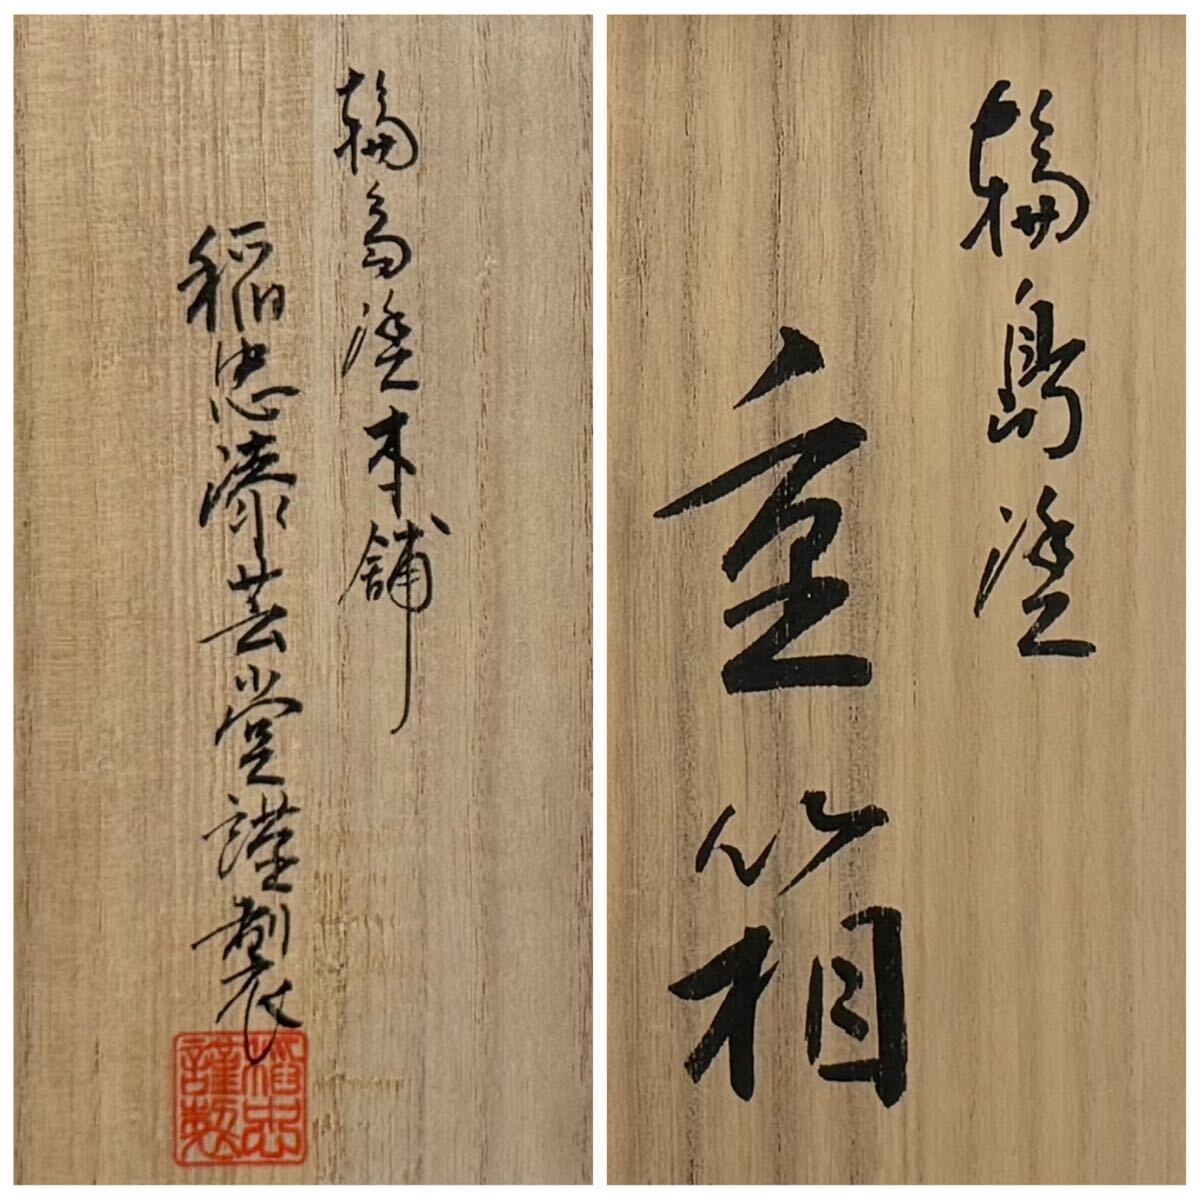 輪島塗本舗
稲忠漆芸堂謹製
稲忠
謹製
輪島塗
重箱